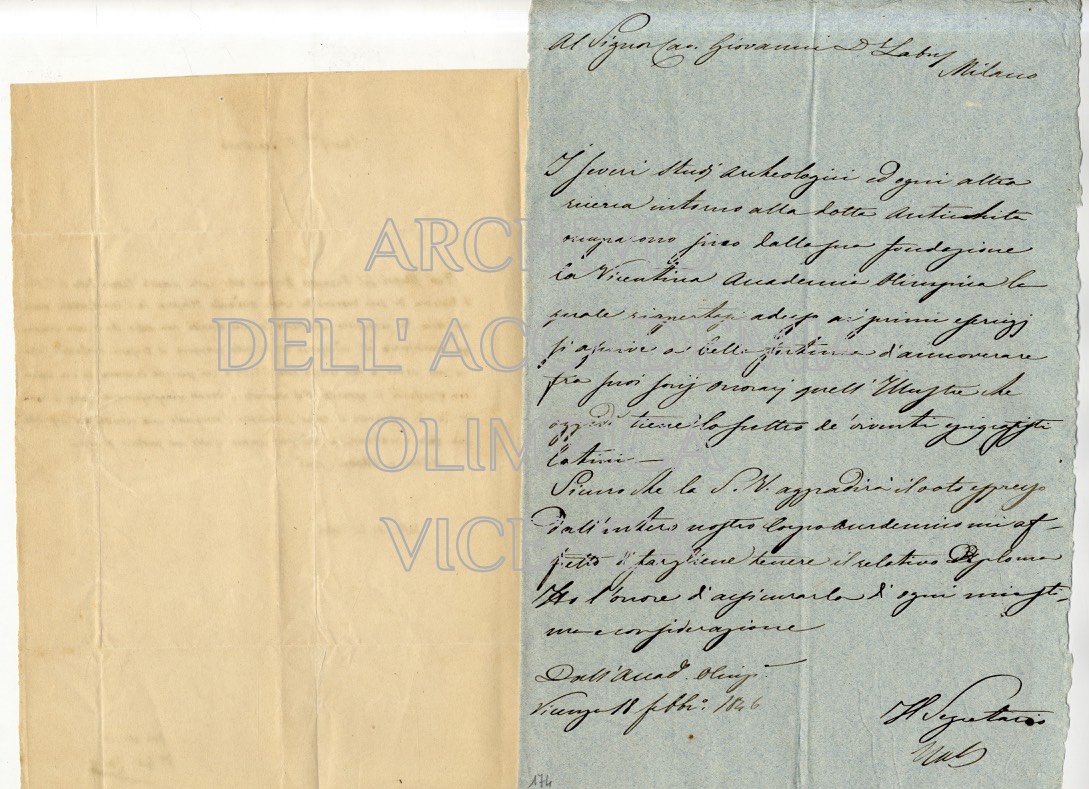 Al Signor Cav. Giovanni Dr Labus
Milano
I severi studj archeologici ed ogni altra
ricerca intorno alla dotta antichità
occuparono sino dalla sua fondazione
la Vicentina Accademia Olimpica la
quale riapertasi adesso ai primi esercizj
si ascrive a bella fortuna d'annoverare
fra suoi socij onorarj quell'Illustre che
oggidì tiene lo scettro de' viventi epigrafisti
latini —
Sicuro che la S. V. aggradirà il voto espresso
dall'intero nostro Corpo accademico mi af-
fretto di fargliene tenere il relativo Diploma
Ho l'onore d'assicurarla di ogni mia sti-
ma e considerazione
Dall'Accad. Olimp.
Vicenza 18 febbr. 1846
Il Segretario
174
ARCH
DELL' AC
OLIM
VICE